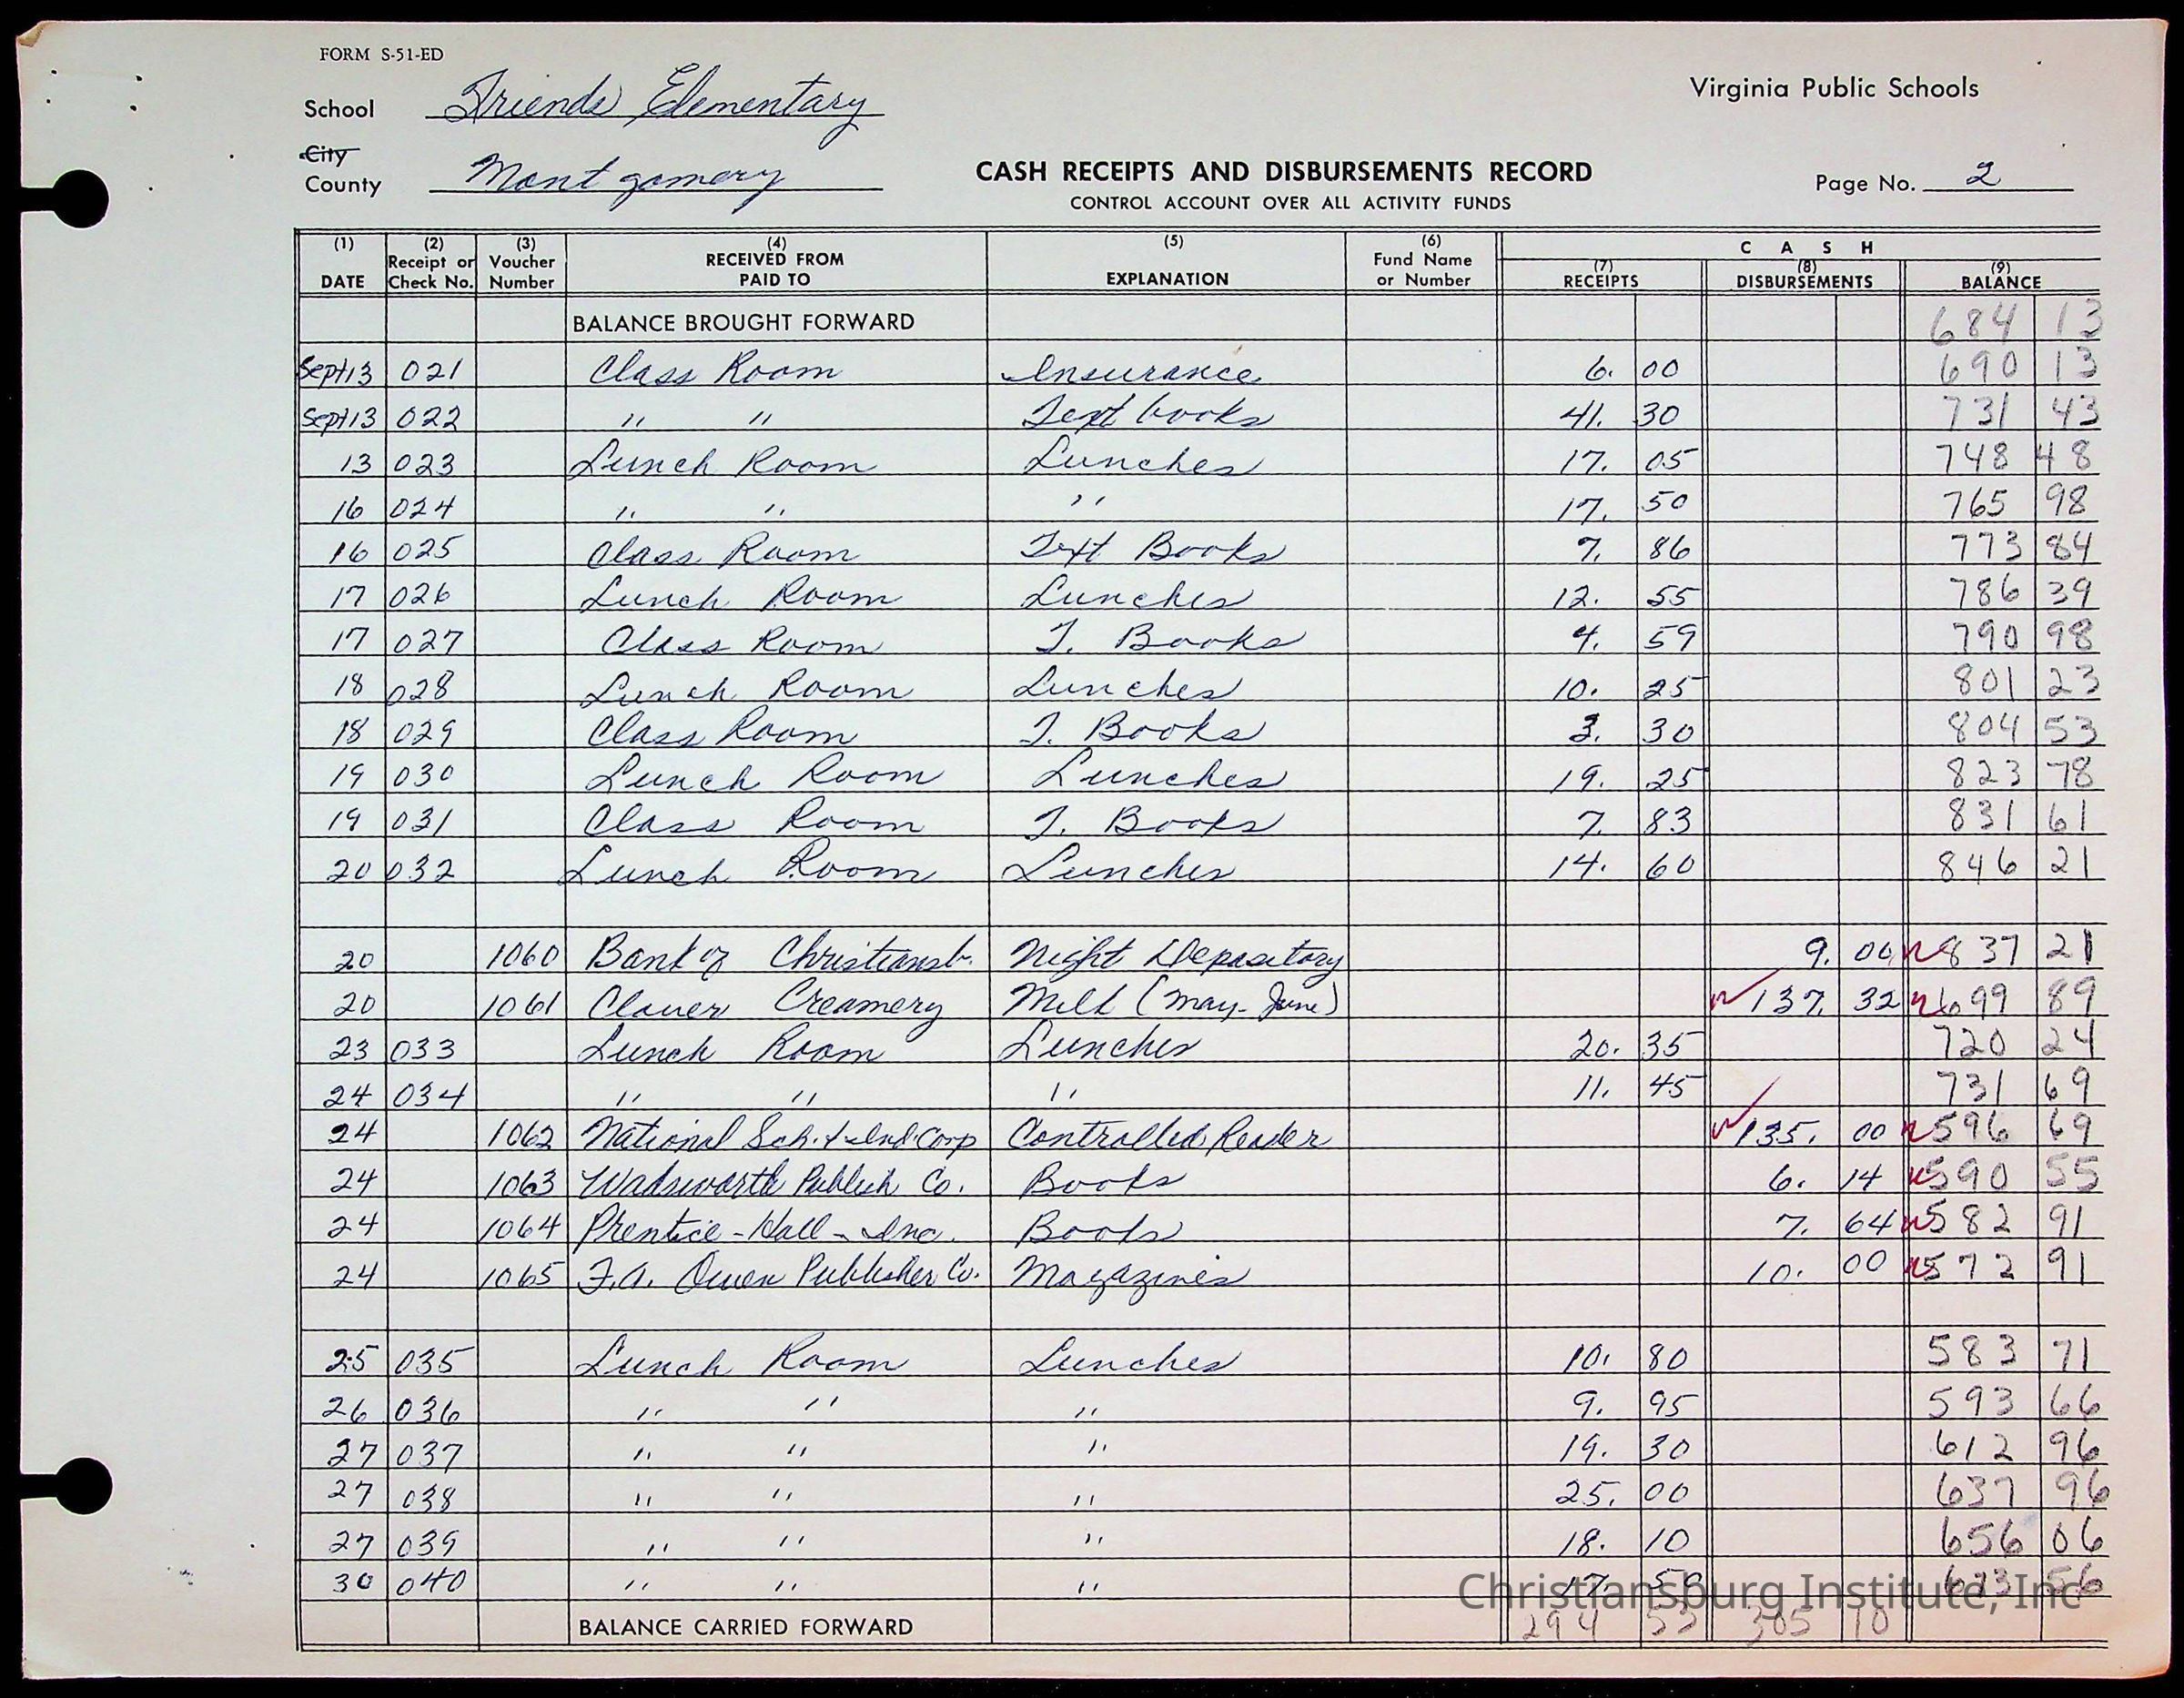 FORM S-51-ED
Virginia Public Schools
School Friends Elementary
City
County Montgomery
CASH RECEIPTS AND DISBURSEMENTS RECORD
CONTROL ACCOUNT OVER ALL ACTIVITY FUNDS
Page No. 2
(1) DATE (2) Receipt or Check No. (3) Voucher Number (4) RECEIVED FROM PAID TO (5) EXPLANATION (6) Fund Name or Number CASH (7) RECEIPTS (8) DISBURSEMENTS (9) BALANCE
BALANCE BROUGHT FORWARD 684 13
Sept 13 021 Class Room Insurance 6. 00 690 13
Sept 13 022 " " Text books 41. 30 731 43
13 023 Lunch Room Lunches 17. 05 748 48
16 024 " " " 17. 50 765 98
16 025 Class Room Text Books 7. 86 773 84
17 026 Lunch Room Lunches 12. 55 786 39
17 027 Class Room T. Books 4. 59 790 98
18 028 Lunch Room Lunches 10. 25 801 23
18 029 Class Room T. Books 3. 30 804 53
19 030 Lunch Room Lunches 19. 25 823 78
19 031 Class Room T. Books 7. 83 831 61
20 032 Lunch Room Lunches 14. 60 846 21
20 1060 Bank of Christiansb. Night Depository 9. 00 837 21
20 1061 Clover Creamery Milk (May-June) 137. 32 699 89
23 033 Lunch Room Lunches 20. 35 720 24
24 034 " " " 11. 45 731 69
24 1062 National Sch. & Ind. Corp Controlled Reader 135. 00 596 69
24 1063 Wadsworth Publish Co. Books 6. 14 590 55
24 1064 Prentice-Hall-Inc. Books 7. 64 582 91
24 1065 F.A. Owen Publisher Co. Magazines 10. 00 572 91
25 035 Lunch Room Lunches 10. 80 583 71
26 036 " " " 9. 95 593 66
27 037 " " " 19. 30 612 96
27 038 " " " 25. 00 637 96
27 039 " " " 18. 10 656 06
30 040 " " " 17. 50 673 56
BALANCE CARRIED FORWARD 294 53 305 10
Christiansburg Institute, Inc